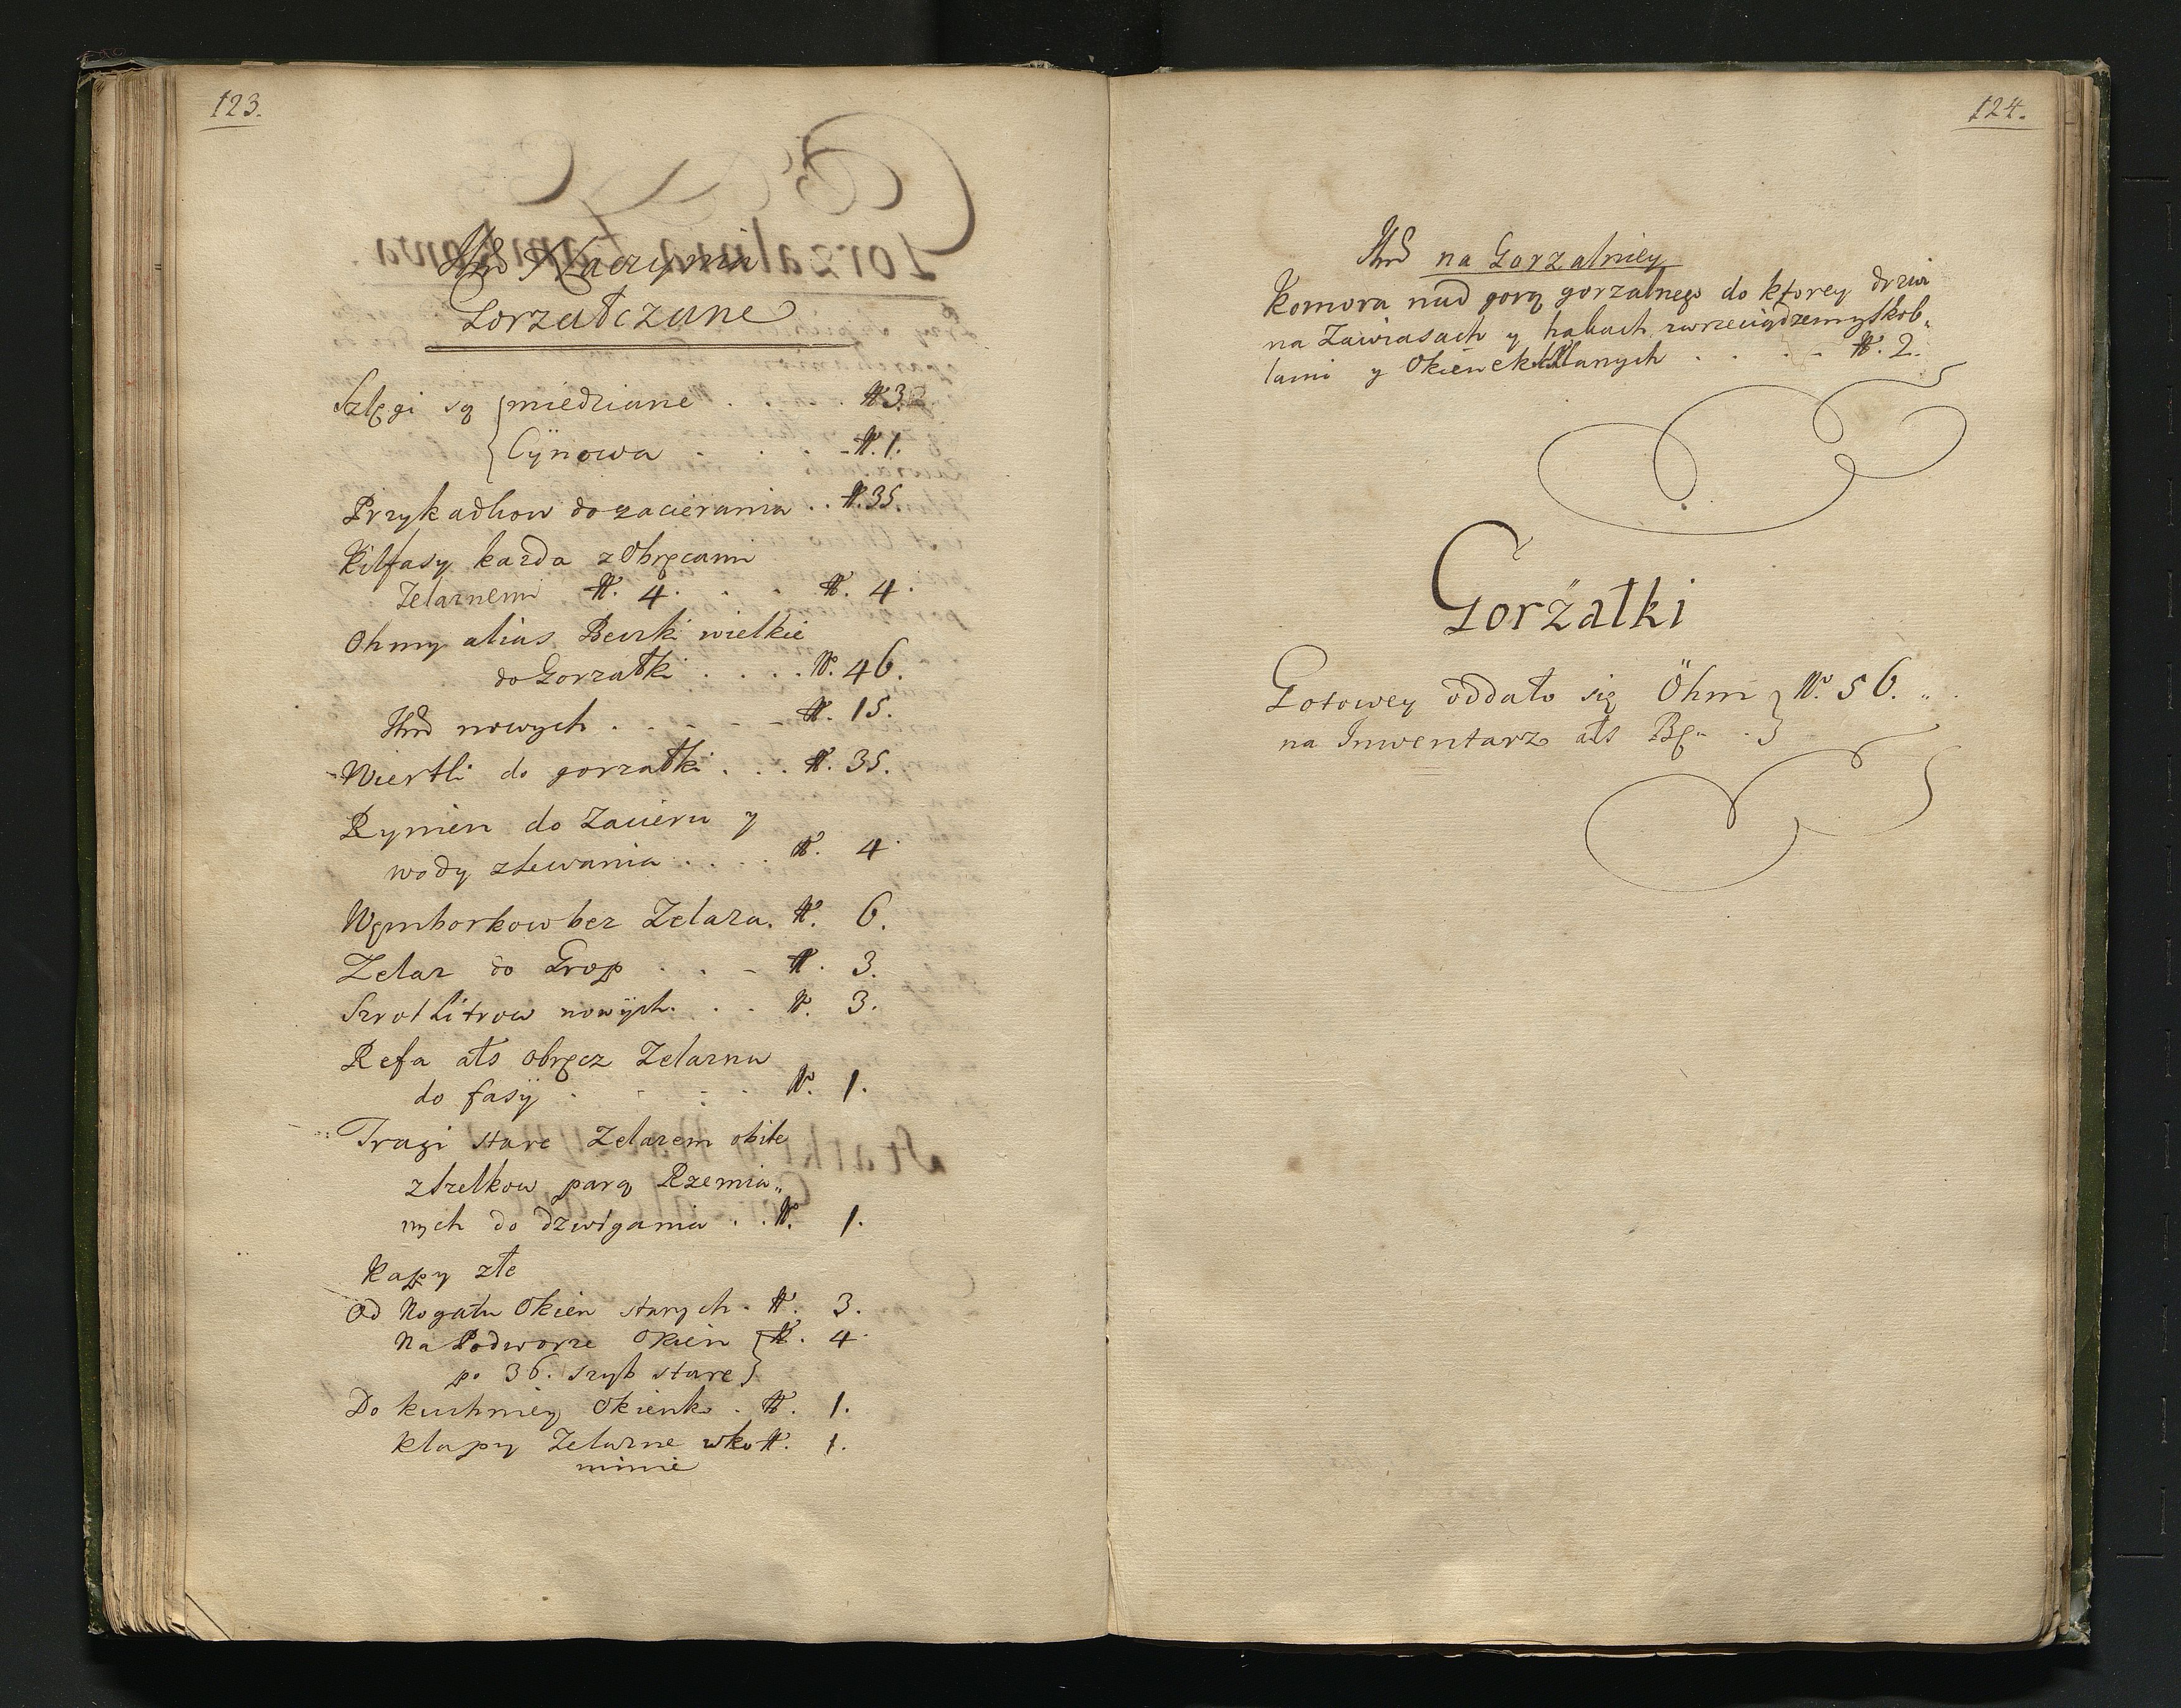 123.
Itm̄d Naczynia
Gorzałczane
Szlęgi są miedziane . . . N. 3.
Cÿnowa . . . N. 1.
Przykadkow do zacierania . . N. 35.
Kilfasy kazda z Obręcami
Zelaznemi N. 4. . . N. 4.
Ohmy alias Beczki wielkie
do Gorzałki . . . . N. 46.
Itm̄d nowych . . . . N. 15.
Wiertli do gorzałki . . . N. 35.
Rynien do Zacieru y
wody zlewania . . . . N. 4.
Węmborkow bez Zelaza. N. 6.
Zelaz do Grop . . . N. 3.
Szrotlitrow nowÿch . . . N. 3.
Refa ałs obręcz Zelazna
do fasÿ . . . . N. 1.
Tragi stare Zelazem obite
z trelkow parą Rzemia„
nych do dzwigania . . N. 1.
Kapy złe
Od Nogatu Okien starych . N. 3.
Na Podworze Okien N. 4.
po 36. szyb stare
Do kuchniey Okienko . N. 1.
Klapy Zelazne w ko N. 1.
minie
124.
Itm̄d na Gorzalniey
Komora nad gorą gorzalnego do ktorey drzwi
na Zawiasach y hakach zwrzeciądzemy Skob„
lami y Okienek Szklanych . . . . N. 2.
Gorżałki
Gotowey oddało się Öhm N. 56. „
na Inwentarz ałs Bę„